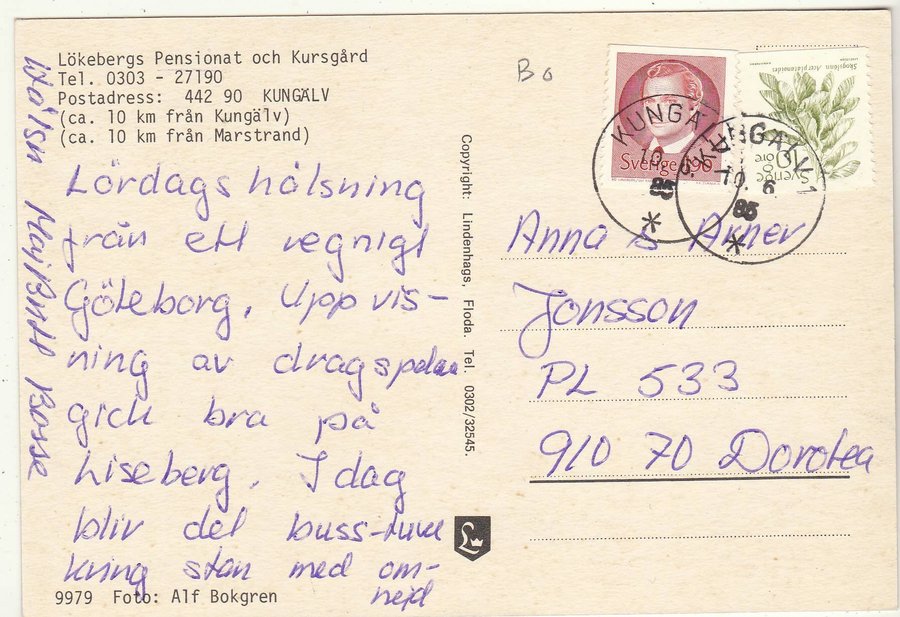 Lökebergs Pensionat och Kursgård
Tel. 0303 - 27190
Postadress: 442 90 KUNGÄLV
(ca. 10 km från Kungälv)
(ca. 10 km från Marstrand)
Lördagshälsning
från ett regnigt
Göteborg. Uppvis-
ning av dragspelen
gick bra på
Liseberg. I dag
blir det buss-ture
kring stan med om-
nejd
Hälsn MajBritt Bosse
9979 Foto: Alf Bokgren
Copyright: Lindenhags, Floda. Tel. 0302/32545.
L
Bo
Sverige 190
Skogslönn Acer platanoides
Sverige
KUNGÄLV 1
10. 6
85
KUNGÄLV 1
10. 6
85
Anna & Arner
Jonsson
PL 533
910 70 Dorotea